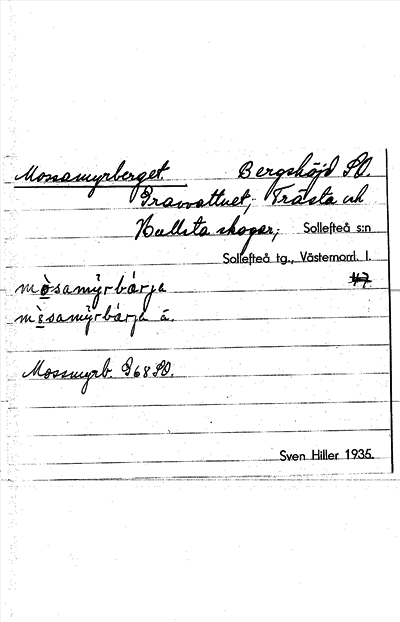 Mossamyrberget. Bergshöjd SO.
Gravvattnet, Trästa och
Hullsta skogar; Sollefteå s:n
Sollefteå tg., Västernorrl. l.
mòsamỳrbárja
mòsamỳrbárja ä.
Mossmyrb. G68SO.
Sven Hiller 1935.